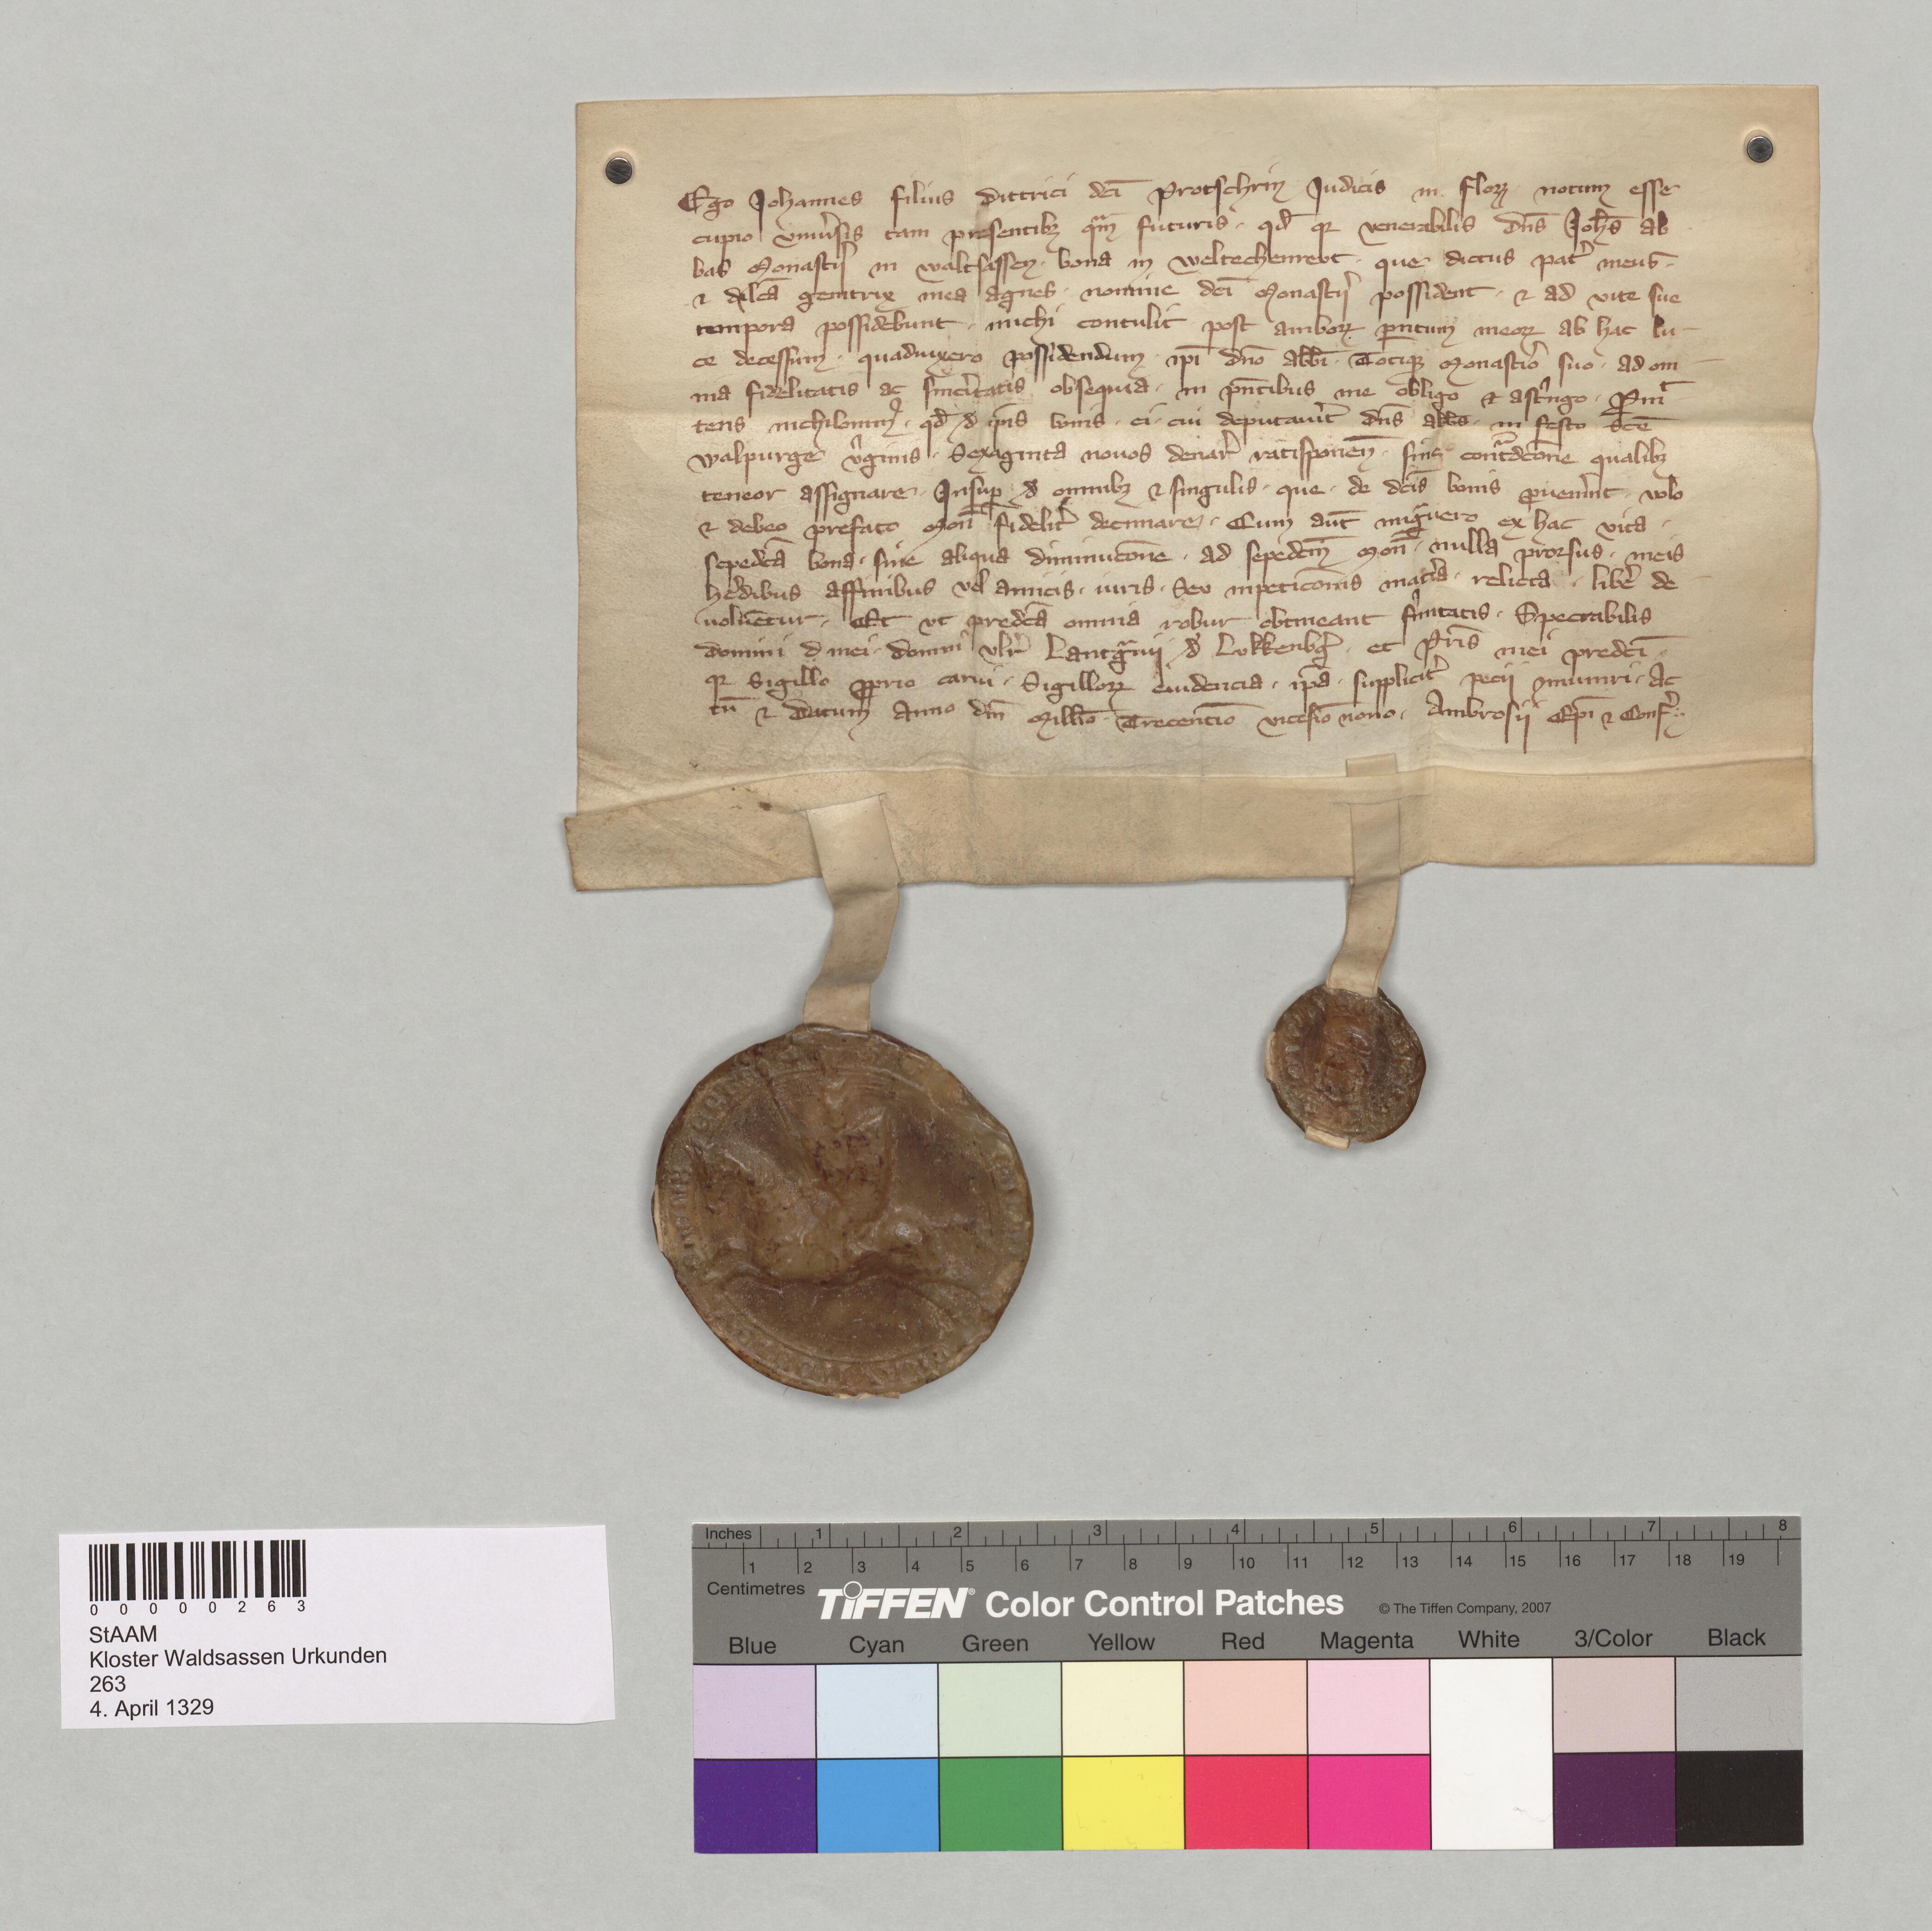 Ego Johannes filius dittrici dc̄i Protschriɳ Judicis in floꝝ notum esse
cupio vniu̾sis tam presentibꝫ qͣm futuris · qd̄ qꝛ venerabilis dn̄s Joh̄s ab
bas Monastı̾ı in waltsassen · bona in weltechenrevt · que dictus pat̾ meus ·
⁊ dilc̄a genitrix mea agnes · nomine dc̄i Monastı̾ı possident · ⁊ ad vite sue
tempora possidebunt · michi contulit post amboꝝ pn̄tum meoꝝ ab hac lu-
ce decessum · quaduixero possidendum · ip̄i dn̄o abb̄i · Totiqꝫ Monastı̾o suo · ad om-
nia fidelitatis ac sinc̾itatis obsequia · in pn̄tibus me obligo ⁊ astͥngo · Pmit
tens nichilominꝰ · qd̄ d̾ ip̄is bonis · ei · cui deputau̾it dn̄s abb̄s · in festo sc̄e
walpurge v̾ginis · Sexaginta nouos denar̾ ratisponen̄ · sine cont͛dcōne qualibꝫ
teneor assignare · Insup̱ d̾ omnibꝫ ⁊ singulis · que · de dc̄is bonis ꝓuen̾int · volo
⁊ debeo prefato Mon̄ fidelit̾ decimare · Cum aut̄ migͣuero ex hac vita ·
sepedc̄a bona · sine aliqua diminucōne · ad sepedc̄m Mon̄ · nulla prorsus · meis
he̾dibus affinibus vel amicis · iuris · Seu inpeticōnis mat̾ia · relicta · libe̾ de-
uoluētur · Et vt predc̄a omnia robur obtineant fͥmitatis · Spectabilis
domini d mei · domini vlr̾ Lantgͣuij d̾ Lvkkenbg̾ · et Pr̄is mei predc̄i ·
qꝛ Sigillo ꝓprio carui · Sigilloꝝ euidencia · ip̄a · supplicit̾ pecij ꝯmuniri · Ac
tū ⁊ datum Anno dn̄i Mill̄io · Trecentīo vicesīo nono · Ambrosij Ep̄i ⁊ Conf̾ :·
0 0 0 0 0 2 6 3
StAAM
Kloster Waldsassen Urkunden
263
4. April 1329
Inches 1 2 3 4 5 6 7 8
1 2 3 4 5 6 7 8 9 10 11 12 13 14 15 16 17 18 19
Centimetres
TIFFEN® Color Control Patches © The Tiffen Company, 2007
Blue Cyan Green Yellow Red Magenta White 3/Color Black